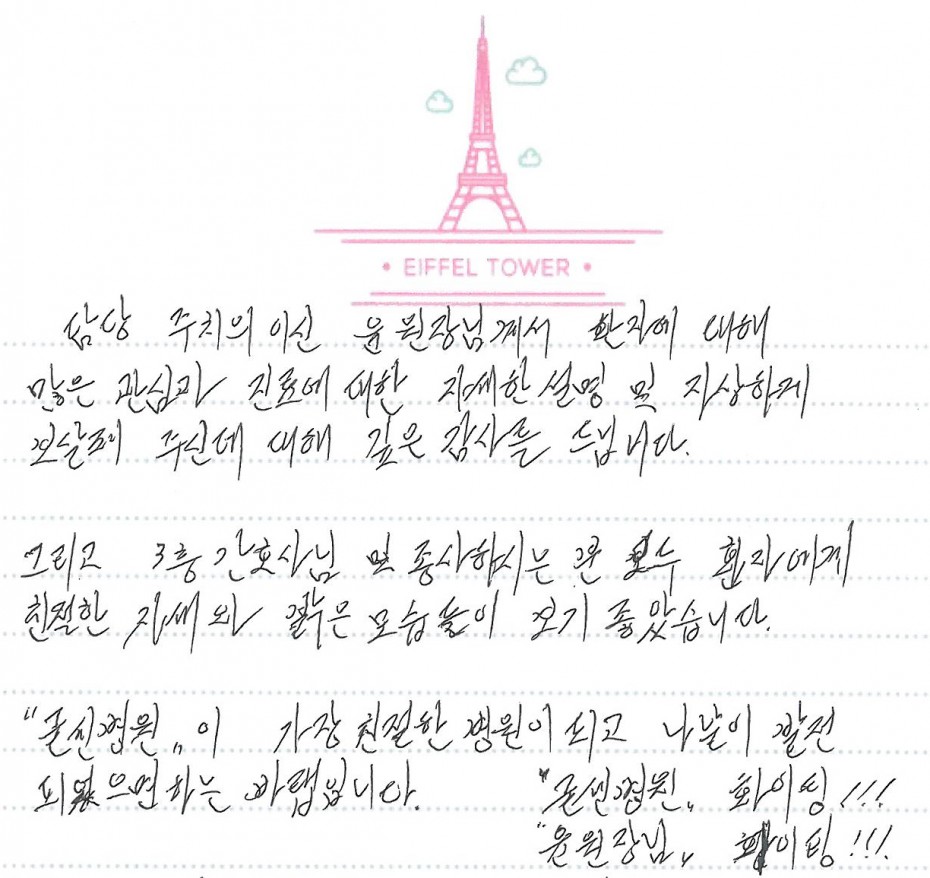 • EIFFEL TOWER •
담당 주치의이신 윤원장님께서 환자에 대해
많은 관심과 진료에 대한 자세한 설명 및 자상하게
보살펴 주신데 대해 깊은 감사를 드립니다.
그리고 3층 간호사님 및 종사하시는 분 모두 환자에게
친절한 자세와 모습들이 보기 좋았습니다.
병원„이 가장 친절한 병원이 되고 나날이 발전
되었으면 하는 바램입니다.
병원„ 화이팅!!!
"윤원장님„ 화이팅!!!